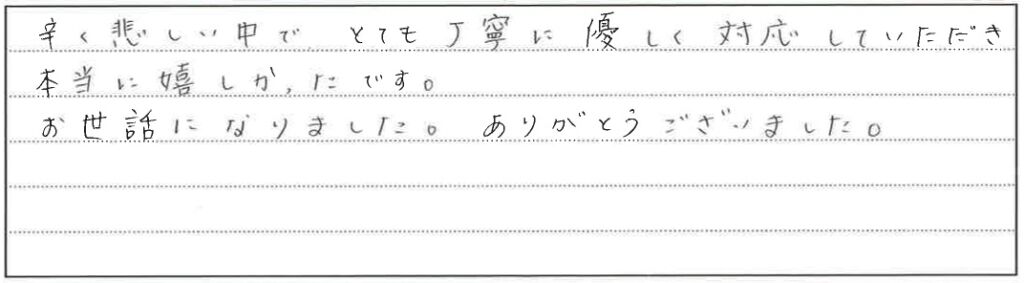 辛く悲しい中で、とても丁寧に優しく対応していただき
本当に嬉しかったです。
お世話になりました。ありがとうございました。